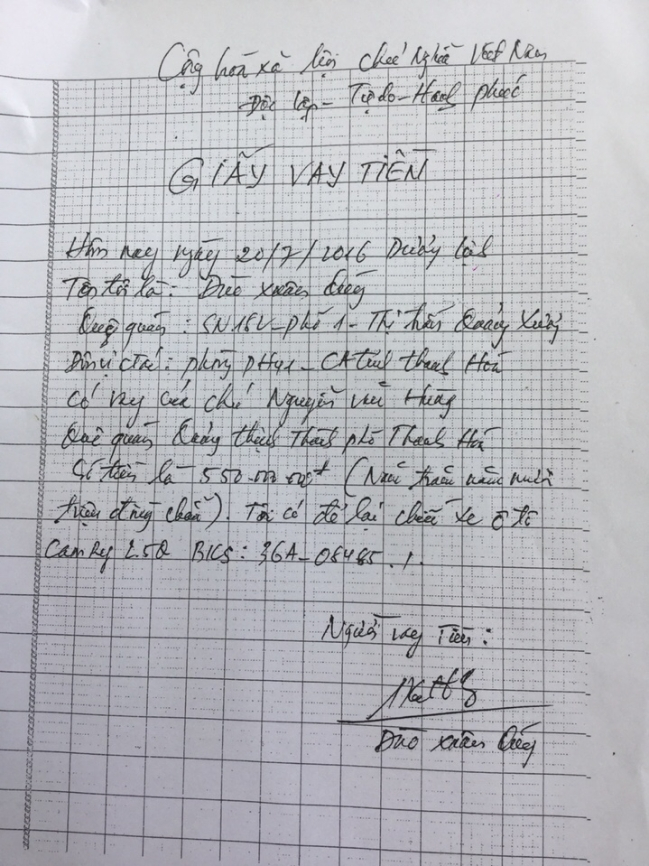 Cộng hòa xã hội chủ Nghĩa Việt Nam
Độc lập - Tự do - Hạnh phúc
GIẤY VAY TIỀN
Hôm nay ngày 20/7/2016 Dương lịch
Tên tôi là: Đào Xuân
Quê quán: SN 15V - phố 1 - Thị trấn Quảng Xương
Đơn vị ctác: phòng PH41 - CA tỉnh Thanh Hoá
Có vay của chú Nguyễn Hùng
Quê quán Quảng thịnh Thành phố Thanh Hoá
Số tiền là 550.000.000đ (Năm trăm năm mươi
triệu đồng chẵn). Tôi có để lại chiếc xe ô tô
Camry 2.5Q BKS: 36A-08485 ./.
Người vay Tiền:
Đào Xuân